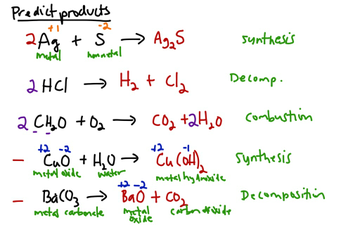 Predict products
+1 -2
2Ag + S → Ag₂S synthesis
metal nonmetal
2HCl → H₂ + Cl₂ Decomp.
2CH₂O + O₂ → CO₂ + 2H₂O combustion
+2 -2 +2 -1
– CuO + H₂O → Cu(OH)₂ Synthesis
metal oxide water metal hydroxide
+2 -2
– BaCO₃ → BaO + CO₂ Decomposition
metal carbonate metal oxide carbon dioxide